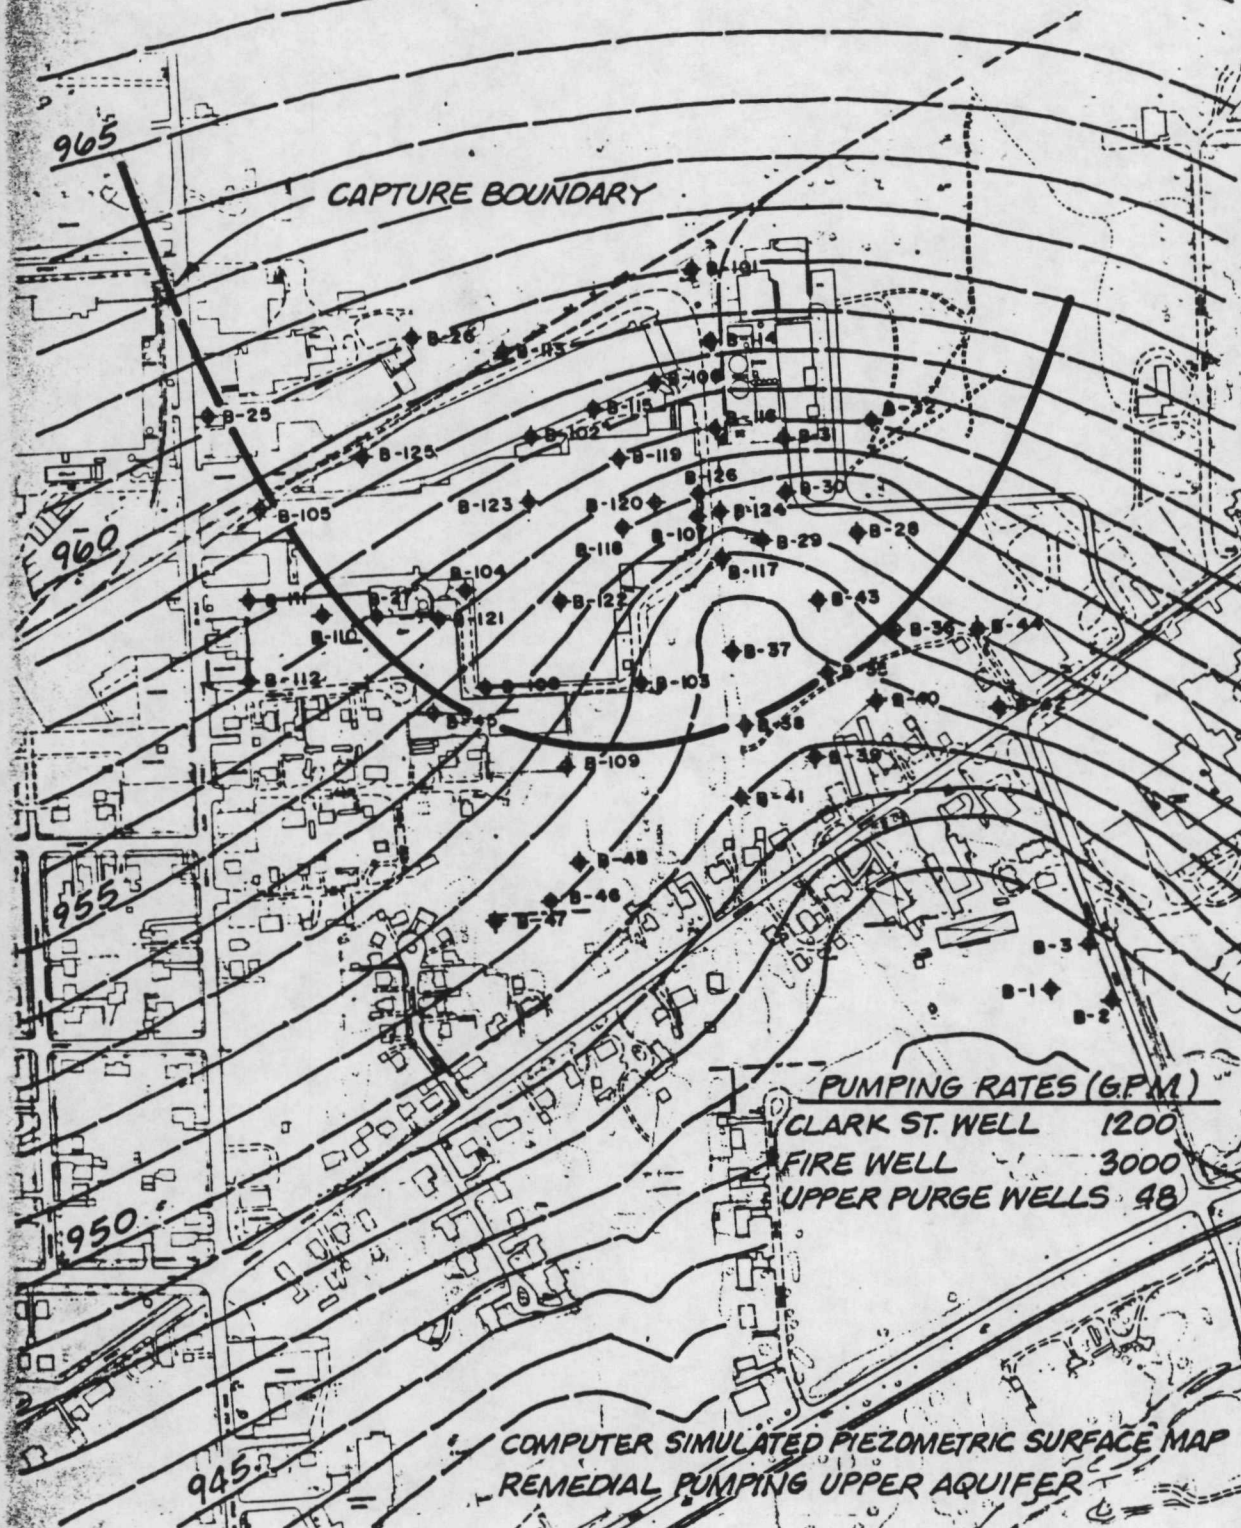 965
CAPTURE BOUNDARY
B-101
B-26
B-113
B-114
B-25
B-115
B-32
B-102
B-116
B-31
B-125
B-119
B-126
B-123
B-120
B-30
B-105
B-124
960
B-118
B-29
B-28
B-117
B-104
B-111
B-122
B-43
B-110
B-121
B-36
B-44
B-37
B-112
B-103
B-40
B-42
B-45
B-38
B-39
B-109
B-41
B-48
955
B-46
B-47
B-3
B-1
B-2
PUMPING RATES (G.P.M.)
CLARK ST. WELL 1200
FIRE WELL 3000
UPPER PURGE WELLS 48
950
COMPUTER SIMULATED PIEZOMETRIC SURFACE MAP
945
REMEDIAL PUMPING UPPER AQUIFER